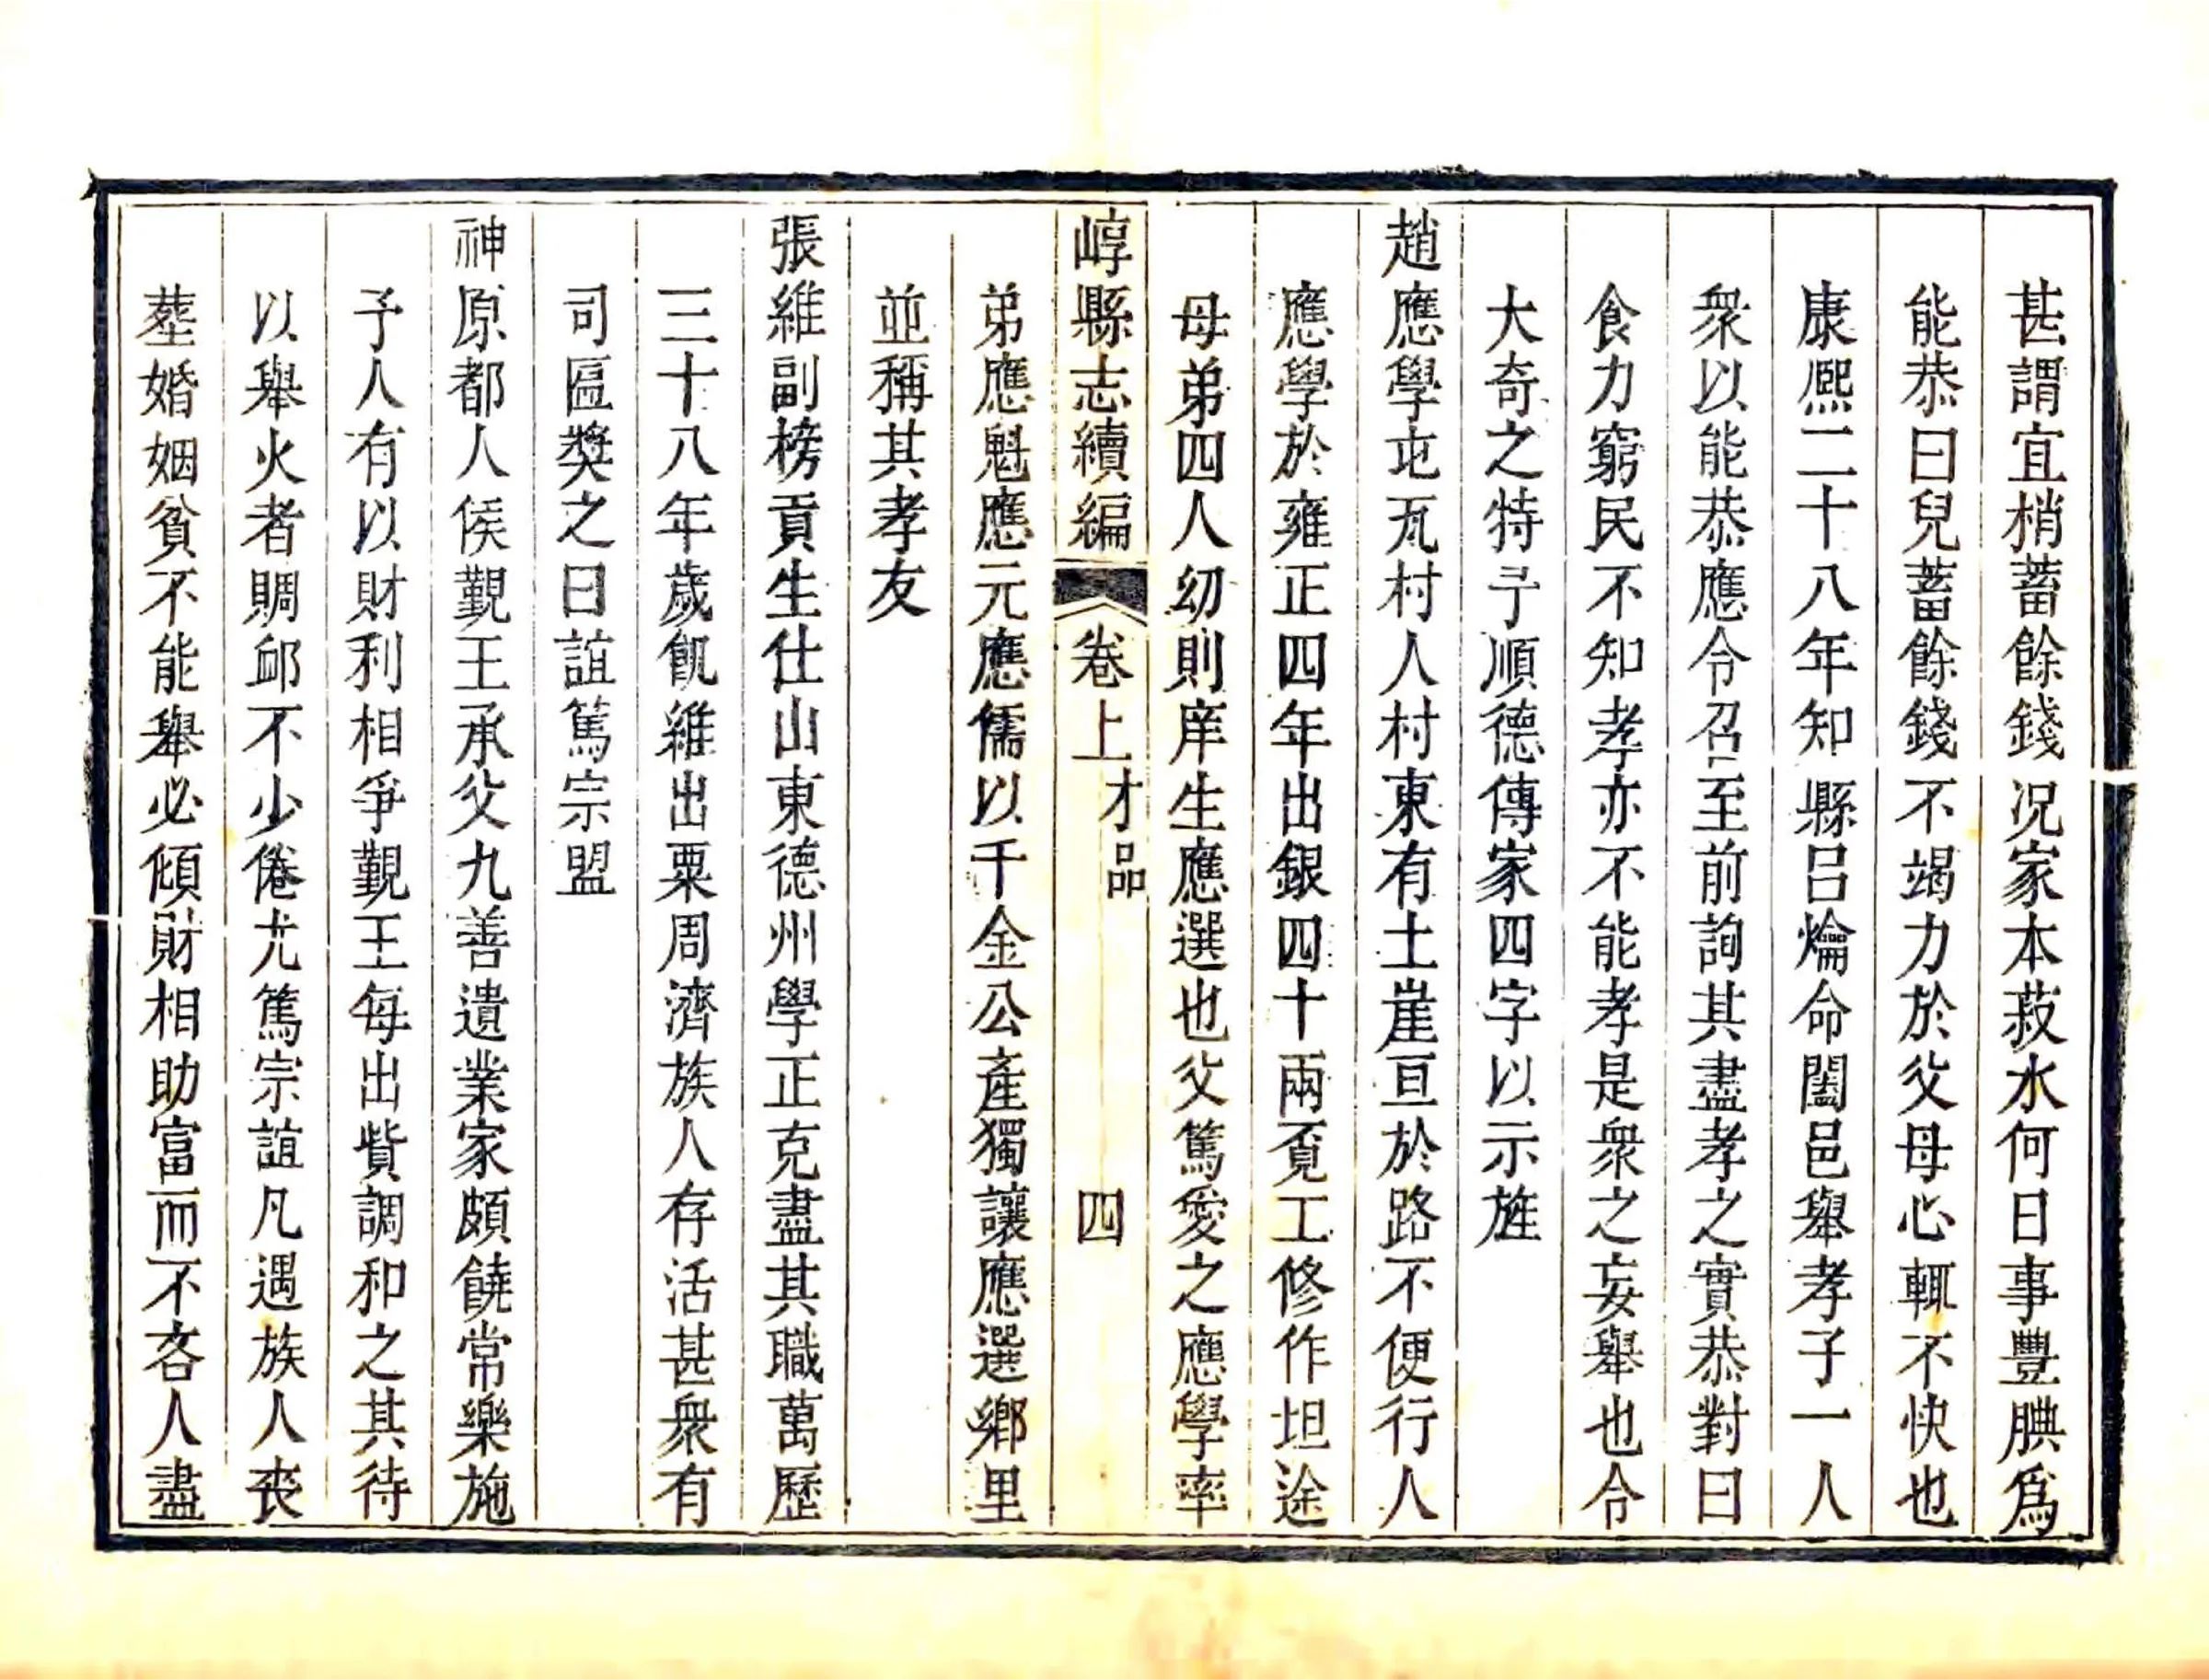 甚謂宜梢蓄餘錢况家本菽水何日事豐腆爲
能恭曰兒蓄餘錢不竭力於父母心輒不快也
康熙二十八年知縣呂爚命闔邑舉孝子一人
衆以能恭應令召至前詢其盡孝之實恭對曰
食力窮民不知孝亦不能孝是衆之妄舉也令
大奇之特予順德傳家四字以示旌
趙應學屯瓦村人村東有土崖亘於路不便行人
應學於雍正四年出銀四十兩覔工修作坦途
母弟四人㓜則庠生應選也父篤愛之應學率
崞縣志續編 卷上 才品 四
弟應魁應元應儒以千金公產獨讓應選鄉里
並稱其孝友
張維副榜貢生仕山東德州學正克盡其職萬歷
三十八年歲飢維出粟周濟族人存活甚衆有
司匾獎之曰誼篤宗盟
神原都人侯覲王承父九善遺業家頗饒常樂施
予人有以財利相爭覲王每出貲調和之其待
以舉火者賙䘏不少倦尤篤宗誼凡遇族人丧
塟婚姻貧不能舉必傾財相助富而不吝人盡